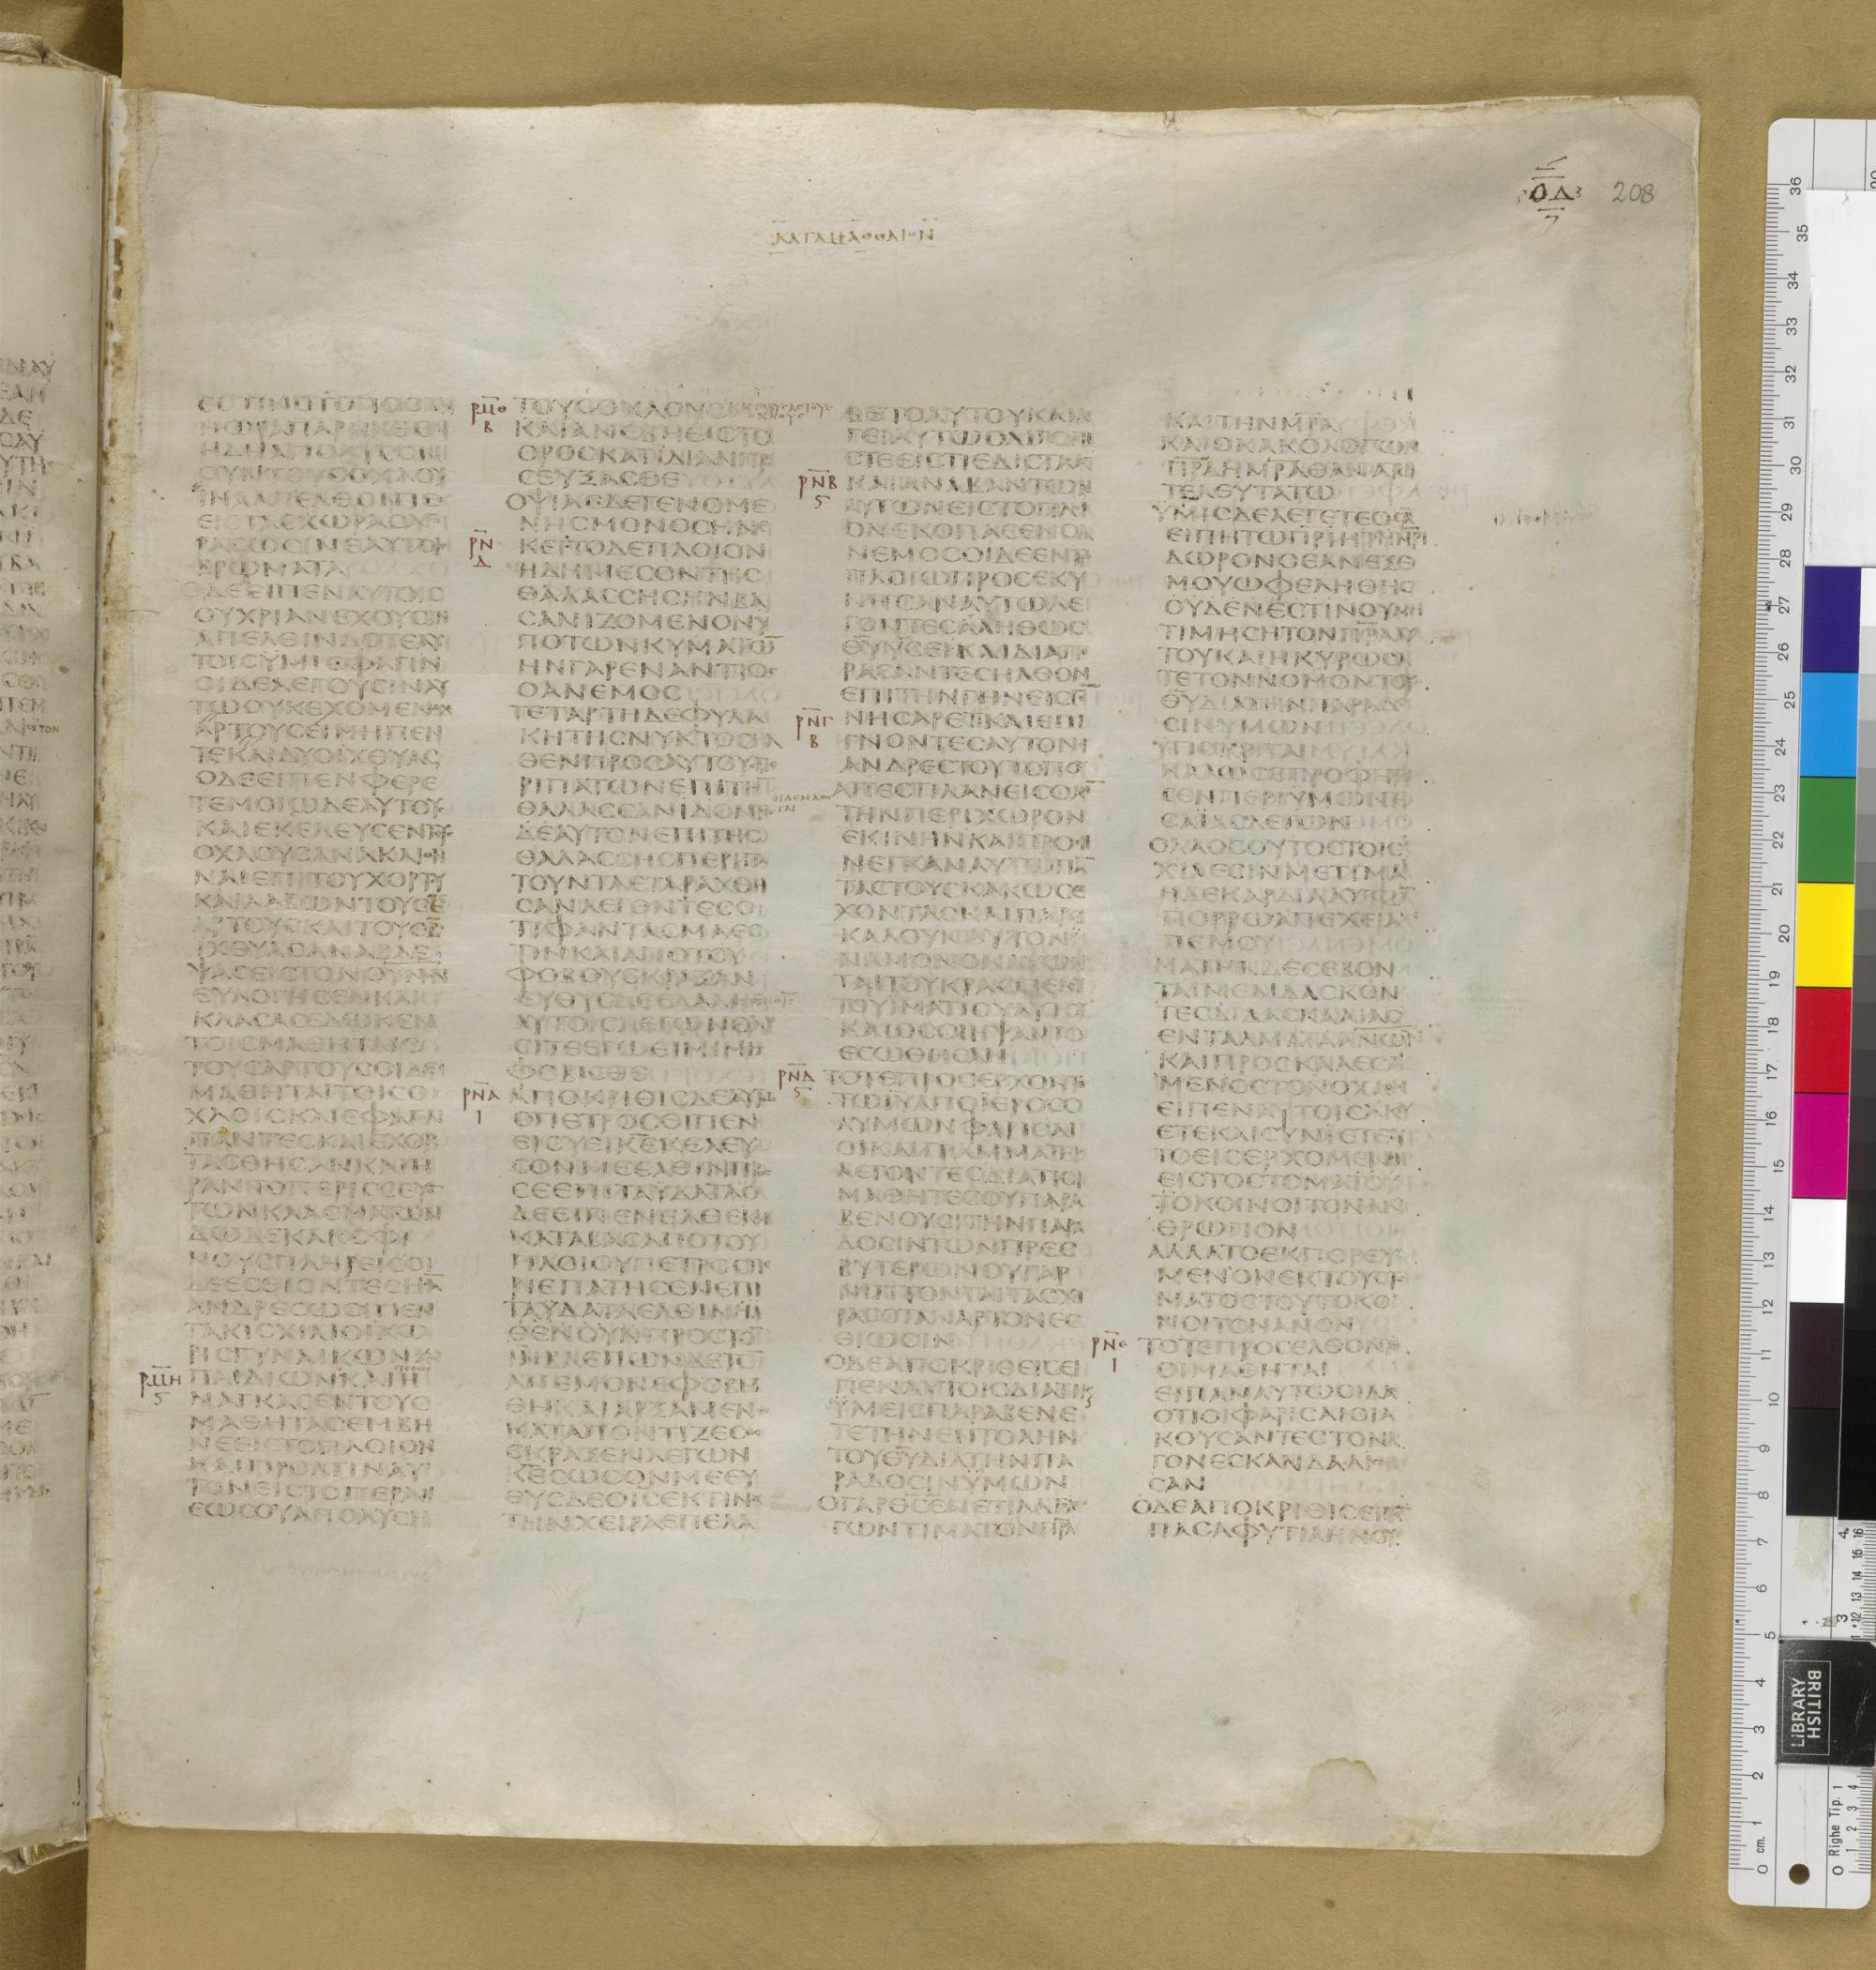 ΚΑΤΑ ΜΑΘΘΑΙΟΝ
ΟΔ 208
ΕϹΤΙΝΟΤΟΠΟϹΚΑΙ
ΗΩΡΑΠΑΡΗΛΘΕΝ
ΗΔΗΑΠΟΛΥϹΟΝ
ΟΥΝΤΟΥϹΟΧΛΟΥϹ
ΙΝΑΑΠΕΛΘΟΝΤΕϹ
ΡΑϹΩϹΙΝΕΑΥΤΟΙϹ
ΒΡΩΜΑΤΑ
ΟΔΕΕΙΠΕΝΑΥΤΟΙϹ
ΟΥΧΡΙΑΝΕΧΟΥϹΙΝ
ΑΠΕΛΘΙΝΔΟΤΕΑΥ
ΤΟΙϹΥΜΙϹΦΑΓΙΝ
ΟΙΔΕΛΕΓΟΥϹΙΝΑΥ
ΤΩΟΥΚΕΧΟΜΕΝ
ΑΡΤΟΥϹΕΙΜΗΠΕΝ
ΤΕΚΑΙΔΥΟΙΧΘΥΑϹ
ΟΔΕΕΙΠΕΝΦΕΡΕ
ΤΕΜΟΙΩΔΕΑΥΤΟΥϹ
ΚΑΙΕΚΕΛΕΥϹΕΝΤΟΥϹ
ΟΧΛΟΥϹΑΝΑΚΛΙΘΗ
ΝΑΙΕΠΙΤΟΥΧΟΡΤΟΥ
ΚΑΙΛΑΒΩΝΤΟΥϹΕ̅
ΑΡΤΟΥϹΚΑΙΤΟΥϹΒ̅
ΙΧΘΥΑϹΑΝΑΒΛΕ
ΨΑϹΕΙϹΤΟΝΟΥΝΟΝ
ΕΥΛΟΓΗϹΕΝΚΑΙ
ΚΛΑϹΑϹΕΔΩΚΕΝ
ΤΟΙϹΜΑΘΗΤΑΙϹ
ΤΟΥϹΑΡΤΟΥϹΟΙΔΕ
ΜΑΘΗΤΑΙΤΟΙϹΟ
ΧΛΟΙϹΚΑΙΕΦΑΓΟΝ
ΠΑΝΤΕϹΚΑΙΕΧΟΡ
ΤΑϹΘΗϹΑΝΚΑΙΗ
ΡΑΝΤΟΠΕΡΙϹϹΕΥΟΝ
ΤΩΝΚΛΑϹΜΑΤΩΝ
ΔΩΔΕΚΑΚΟΦΙ
ΝΟΥϹΠΛΗΡΕΙϹΟΙ
ΔΕΕϹΘΙΟΝΤΕϹΗϹΑ̅
ΑΝΔΡΕϹΩϹΙΠΕΝ
ΤΑΚΙϹΧΙΛΙΟΙΧΩ
ΡΙϹΓΥΝΑΙΚΩΝΚΑΙ
ΡΜΗ Ϛ ΠΑΙΔΙΩΝΚΑΙΗ
ΝΑΓΚΑϹΕΝΤΟΥϹ
ΜΑΘΗΤΑϹΕΜΒΗ
ΝΕΕΙϹΤΟΠΛΟΙΟΝ
ΚΑΙΠΡΟΑΓΙΝΑΥ
ΤΟΝΕΙϹΤΟΠΕΡΑΝ
ΕΩϹΟΥΑΠΟΛΥϹΗ
ΡΜΘ Β ΤΟΥϹΟΧΛΟΥϹ
ΚΑΙΑΝΕΒΗΕΙϹΤΟ
ΟΡΟϹΚΑΤΙΔΙΑΝΠΡΟ
ϹΕΥΞΑϹΘΕ
ΟΨΙΑϹΔΕΓΕΝΟΜΕ
ΝΗϹΜΟΝΟϹΗΝΕ
ΡΝ Δ ΚΕΙΤΟΔΕΠΛΟΙΟΝ
ΗΔΗΜΕϹΟΝΤΗϹ
ΘΑΛΑϹϹΗϹΗΝΒΑ
ϹΑΝΙΖΟΜΕΝΟΝΥ
ΠΟΤΩΝΚΥΜΑΤΩ̅
ΗΝΓΑΡΕΝΑΝΤΙΟϹ
ΟΑΝΕΜΟϹ
ΤΕΤΑΡΤΗΔΕΦΥΛΑ
ΚΗΤΗϹΝΥΚΤΟϹΗΛ
ΘΕΝΠΡΟϹΑΥΤΟΥϹΠΕ
ΡΙΠΑΤΩΝΕΠΙΤΗΝ
ΘΑΛΑϹϹΑΝΙΔΟΝΤΕϹ
ΔΕΑΥΤΟΝΕΠΙΤΗϹ
ΘΑΛΑϹϹΗϹΠΕΡΙΠΑ
ΤΟΥΝΤΑΕΤΑΡΑΧΘΗ
ϹΑΝΛΕΓΟΝΤΕϹΟ
ΤΙΦΑΝΤΑϹΜΑΕϹ
ΤΙΝΚΑΙΑΠΟΤΟΥ
ΦΟΒΟΥΕΚΡΑΞΑΝ
ΕΥΘΥϹΔΕΕΛΑΛΗϹΕΝ
ΑΥΤΟΙϹΛΕΓΩΝΘΑΡ
ϹΙΤΕΕΓΩΕΙΜΙΜΗ
ΦΟΒΙϹΘΕ
ΡΝΑ Ι ΑΠΟΚΡΙΘΙϹΔΕΑΥΤΩ
ΟΠΕΤΡΟϹΕΙΠΕΝ
ΕΙϹΥΕΙΚ̅Ε̅ΚΕΛΕΥ
ϹΟΝΜΕΕΛΘΙΝΠΡΟϹ
ϹΕΕΠΙΤΑΫΔΑΤΑΟ
ΔΕΕΙΠΕΝΕΛΘΕΚΑΙ
ΚΑΤΑΒΑϹΑΠΟΤΟΥ
ΠΛΟΙΟΥΠΕΤΡΟϹΠΕ
ΡΙΕΠΑΤΗϹΕΝΕΠΙ
ΤΑΫΔΑΤΑΕΛΘΙΝΗΛ
ΘΕΝΟΥΝΠΡΟϹΤΟ̅
Ι̅Ν̅ΒΛΕΠΩΝΔΕΤΟ̅
ΑΝΕΜΟΝΕΦΟΒΗ
ΘΗΚΑΙΑΡΞΑΜΕΝΟϹ
ΚΑΤΑΠΟΝΤΙΖΕϹΘΑΙ
ΕΚΡΑΞΕΝΛΕΓΩΝ
Κ̅Ε̅ϹΩϹΟΝΜΕΕΥ
ΘΥϹΔΕΟΙϹΕΚΤΙΝΑϹ
ΤΗΝΧΕΙΡΑΕΠΕΛΑ
ΒΕΤΟΑΥΤΟΥΚΑΙΛΕ
ΓΕΙΑΥΤΩΟΛΙΓΟΠΙ
ϹΤΕΕΙϹΤΙΕΔΙϹΤΑϹΑϹ
ΡΝΒ Ϛ ΚΑΙΑΝΑΒΑΝΤΩΝ
ΑΥΤΩΝΕΙϹΤΟΠΛΟΙ
ΟΝΕΚΟΠΑϹΕΝΟΑ
ΝΕΜΟϹΟΙΔΕΕΝΤΩ
ΠΛΟΙΩΠΡΟϹΕΚΥ
ΝΗϹΑΝΑΥΤΩΛΕ
ΓΟΝΤΕϹΑΛΗΘΩϹ
Θ̅Υ̅Υ̅Ϲ̅ΕΙΚΑΙΔΙΑΠΕ
ΡΑϹΑΝΤΕϹΗΛΘΟΝ
ΕΠΙΤΗΝΓΗΝΕΙϹΓΕ̅
ΡΝΓ Β ΝΗϹΑΡΕΤΚΑΙΕΠΙ
ΓΝΟΝΤΕϹΑΥΤΟΝΟΙ
ΑΝΔΡΕϹΤΟΥΤΟΠΟΥ
ΑΠΕϹΤΙΛΑΝΕΙϹΟΛΗ̅
ΤΗΝΠΕΡΙΧΩΡΟΝ
ΕΚΙΝΗΝΚΑΙΠΡΟϹΗ
ΝΕΓΚΑΝΑΥΤΩΠΑ̅
ΤΑϹΤΟΥϹΚΑΚΩϹΕ
ΧΟΝΤΑϹΚΑΙΠΑΡΕ
ΚΑΛΟΥΝΑΥΤΟΝΪ
ΝΑΜΟΝΟΝΑΨΩΝ
ΤΑΙΤΟΥΚΡΑϹΠΕΔΟΥ
ΤΟΥΙΜΑΤΙΟΥΑΥΤΟΥ
ΚΑΙΟϹΟΙΗΨΑΝΤΟ
ΕϹΩΘΗϹΑΝ
ΡΝΔ Ϛ ΤΟΤΕΠΡΟϹΕΡΧΟΝΤΑΙ
ΤΩΙ̅Υ̅ΑΠΟΪΕΡΟϹΟ
ΛΥΜΩΝΦΑΡΙϹΑΙ
ΟΙΚΑΙΓΡΑΜΜΑΤΕΙϹ
ΛΕΓΟΝΤΕϹΔΙΑΤΙΟΙ
ΜΑΘΗΤΕϹΟΥΠΑΡΑ
ΒΕΝΟΥϹΙΤΗΝΠΑΡΑ
ΔΟϹΙΝΤΩΝΠΡΕϹ
ΒΥΤΕΡΩΝΟΥΓΑΡ
ΝΙΠΤΟΝΤΑΙΤΑϹΧΙ
ΡΑϹΟΤΑΝΑΡΤΟΝΕϹ
ΘΙΩϹΙΝ
ΟΔΕΑΠΟΚΡΙΘΕΙϹΕΙ
ΠΕΝΑΥΤΟΙϹΔΙΑΤΙΚΑΙ
ΫΜΕΙϹΠΑΡΑΒΕΝΕ
ΤΕΤΗΝΕΝΤΟΛΗΝ
ΤΟΥΘ̅Υ̅ΔΙΑΤΗΝΠΑ
ΡΑΔΟϹΙΝΫΜΩΝ
ΟΓΑΡΘϹΕΝΕΤΙΛΑΤΟ
ΓΩΝΤΙΜΑΤΟΝΠ̅Ρ̅Α̅
ΚΑΙΤΗΝΜ̅Ρ̅Α̅
ΚΑΙΟΚΑΚΟΛΟΓΩΝ
Π̅Ρ̅Α̅ΗΜ̅Ρ̅Α̅ΘΑΝΑΤΩ
ΤΕΛΕΥΤΑΤΩ
ΫΜΙϹΔΕΛΕΓΕΤΕΟϹΑ̅
ΕΙΠΗΤΩΠ̅Ρ̅ΙΗΤΗΜ̅Ρ̅Ι
ΔΩΡΟΝΟΕΑΝΕΞΕ
ΜΟΥΩΦΕΛΗΘΗϹ
ΟΥΔΕΝΕϹΤΙΝΟΥΜΗ
ΤΙΜΗϹΗΤΟΝΠ̅Ρ̅Α̅ΑΥ
ΤΟΥΚΑΙΗΚΥΡΩϹΑ
ΤΕΤΟΝΝΟΜΟΝΤΟΥ
Θ̅Υ̅ΔΙΑΤΗΝΠΑΡΑΔΟ
ϹΙΝΥΜΩΝ
ΫΠΟΚΡΙΤΑΙ
ΚΑΛΩϹΕΠΡΟΦΗΤΕΥ
ϹΕΝΠΕΡΙΥΜΩΝΗ
ϹΑΪΑϹΛΕΓΩΝ
ΟΛΑΟϹΟΥΤΟϹΤΟΙϹ
ΧΙΛΕϹΙΝΜΕΤΙΜΑ
ΗΔΕΚΑΡΔΙΑΑΥΤΩ̅
ΠΟΡΡΩΑΠΕΧΕΙΑ
ΠΕΜΟΥ
ΜΑΤΗΝΔΕϹΕΒΟΝ
ΤΑΙΜΕΔΙΔΑϹΚΟΝ
ΤΕϹΔΙΔΑϹΚΑΛΙΑϹ
ΕΝΤΑΛΜΑΤΑΑ̅Ν̅Ω̅Ν̅
ΚΑΙΠΡΟϹΚΑΛΕϹΑ
ΜΕΝΟϹΤΟΝΟΧΛΟΝ
ΕΙΠΕΝΑΥΤΟΙϹΑΚΟΥ
ΕΤΕΚΑΙϹΥΝΙΕΤΕΟΥ
ΤΟΕΙϹΕΡΧΟΜΕΝΟΝ
ΕΙϹΤΟϹΤΟΜΑΤΟΥ
ΤΟΚΟΙΝΟΙΤΟΝΑΝ
ΘΡΩΠΟΝ
ΑΛΛΑΤΟΕΚΠΟΡΕΥΟ
ΜΕΝΟΝΕΚΤΟΥϹΤΟ
ΜΑΤΟϹΤΟΥΤΟΚΟΙ
ΝΟΙΤΟΝΑΝΟΝ
ΡΝΕ Ι ΤΟΤΕΠΡΟϹΕΛΘΟΝΤΕϹ
ΟΙΜΑΘΗΤΑΙ
ΕΙΠΑΝΑΥΤΩΟΙΔΑϹ
ΟΤΙΟΙΦΑΡΙϹΑΙΟΙΑ
ΚΟΥϹΑΝΤΕϹΤΟΝΛΟ
ΓΟΝΕϹΚΑΝΔΑΛΙϹΘΗ
ϹΑΝ
ΟΔΕΑΠΟΚΡΙΘΙϹΕΙΠΕΝ
ΠΑϹΑΦΥΤΙΑΗΝΟΥ
BRITISH LIBRARY